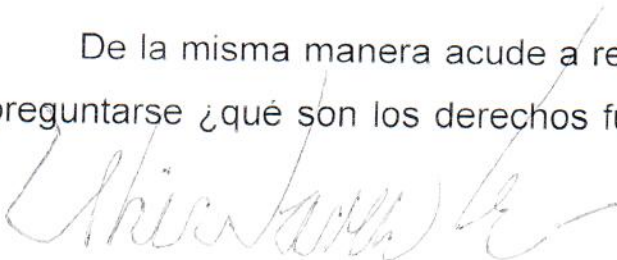 De la misma manera acude a re
preguntarse ¿qué son los derechos fu